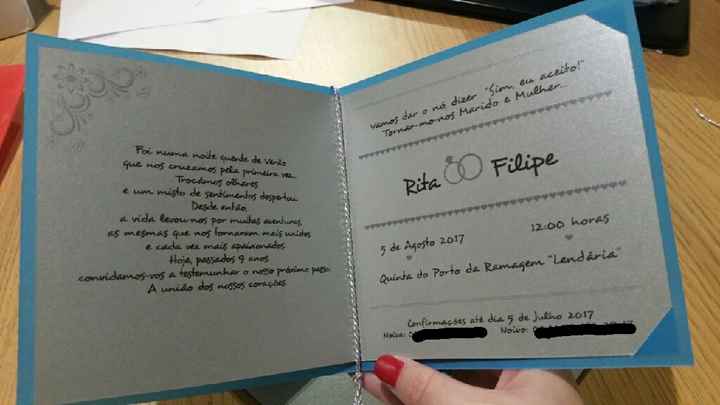 Foi numa noite quente de verão
que nos cruzamos pela primeira vez.
Trocámos olhares
e um misto de sentimentos despertou.
Desde então,
a vida levou-nos por muitas aventuras,
as mesmas que nos tornaram mais unidos
e cada vez mais apaixonados.
Hoje, passados 9 anos
convidamos-vos a testemunhar o nosso próximo passo:
A união dos nossos corações
Vamos dar o nó, dizer "Sim, eu aceito!"
Tornar-mo-nos Marido e Mulher...
Rita Filipe
5 de Agosto 2017 12:00 horas
Quinta do Porto da Ramagem "Lendária"
Confirmações até dia 5 de Julho 2017
Noiva: Noivo: